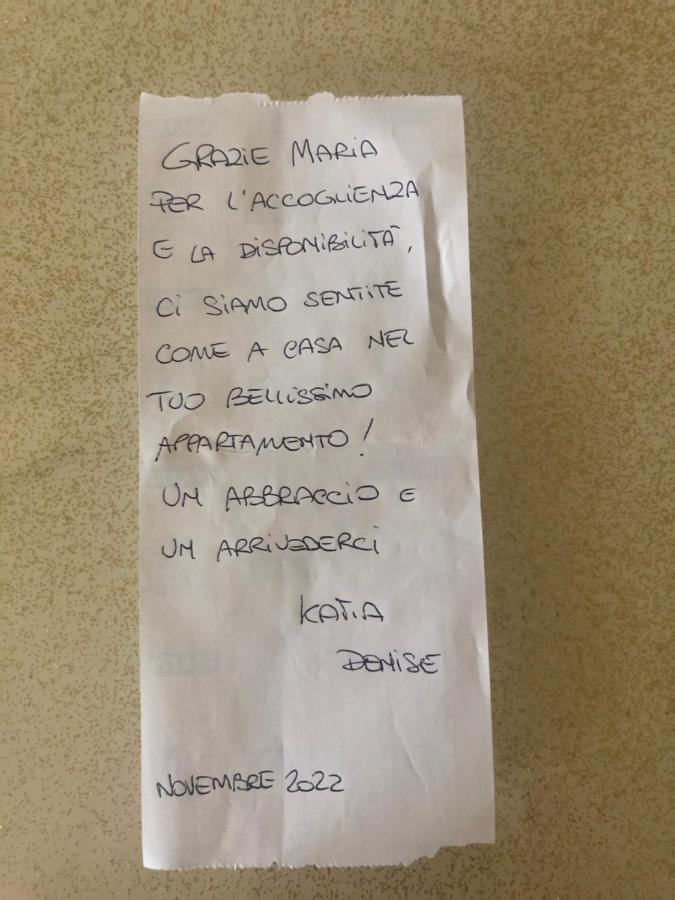 GRAZIE MARIA
PER L'ACCOGLIENZA
E LA DISPONIBILITÀ,
CI SIAMO SENTITE
COME A CASA NEL
TUO BELLISSIMO
APPARTAMENTO!
UN ABBRACCIO E
UN ARRIVEDERCI
KATIA
DENISE
NOVEMBRE 2022